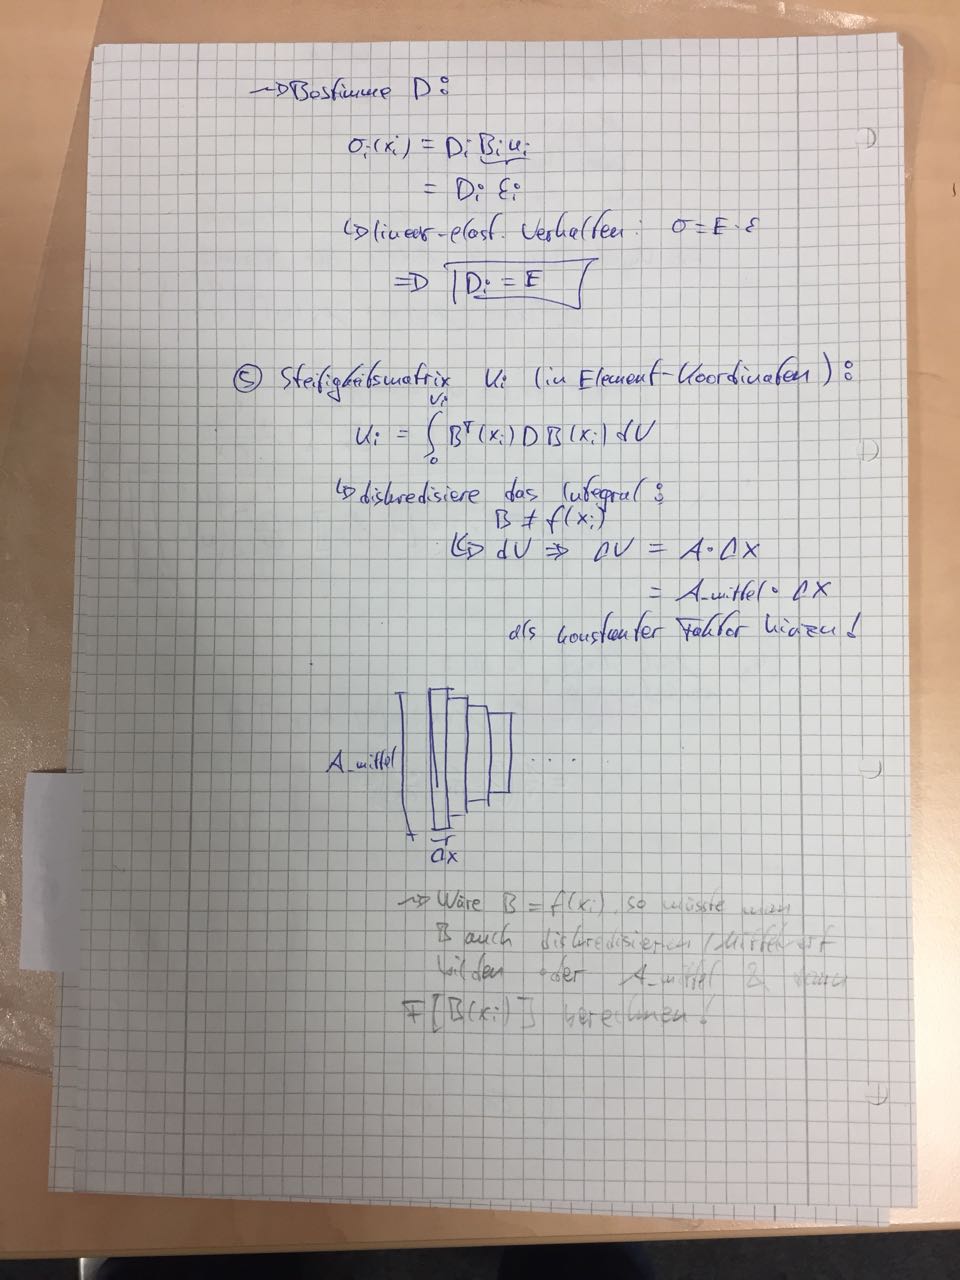 → Bestimme D:
σᵢ(xᵢ) = Dᵢ Bᵢ uᵢ
= Dᵢ εᵢ
↳ linear-elast. Verhalten: σ = E · ε
⇒ Dᵢ = E
⑤ Steifigkeitsmatrix Kᵢ (in Element-Koordinaten):
Kᵢ = ∫₀^Vᵢ Bᵀ(xᵢ) D B(xᵢ) dV
↳ diskredisiere das Integral:
B ≠ f(xᵢ)
↳ dV ⇒ ΔV = A · Δx
= A_mittel · Δx
als konstanter Faktor hinzu!
A_mittel
. . . .
Δx
→ Wäre B = f(xᵢ), so müsste man
B auch diskredisieren / Mittelwert
bilden oder A_mittel & dann
F[B(xᵢ)] berechnen!